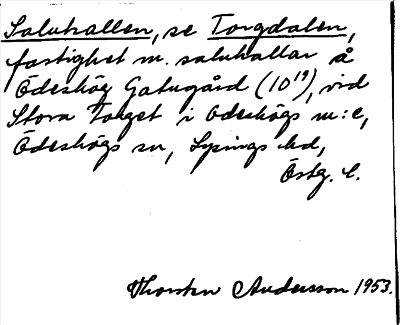 Saluhallen, se Torgdalen,
fastighet m. saluhallar å
Ödeshög Gatugård (10¹⁹), vid
Stora Torget i Ödeshögs m:e,
Ödeshögs sn, Lysings hd,
Östg. l.
Thorsten Andersson 1953.